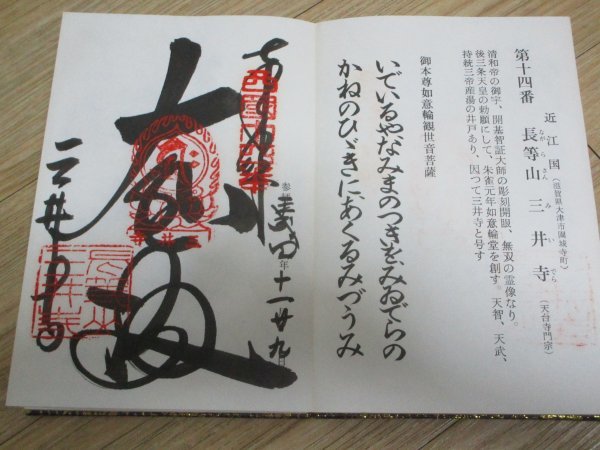 第十四番 近江国 (滋賀県大津市園城寺町)
長等山 三井寺 (天台寺門宗)
ながらさん みいでら
清和帝の御宇、開基智証大師の彫刻開眼、無双の霊像なり。
後三条天皇の勅願にして、朱雀元年如意輪堂を創す。天智、天武、
持統三帝産湯の井戸あり、因つて三井寺と号す
御本尊如意輪観世音菩薩
いでいるやなみまのつきをみゐでらの
かねのひゞきにあくるみづうみ
西国十四番
年十一月廿九日
大悲殿
三井寺